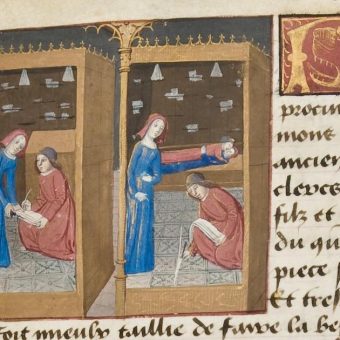 procin
mont
ancien
cleyes
filz et
du qu
piece
Et tres
soit mieulx taillie de faire la be